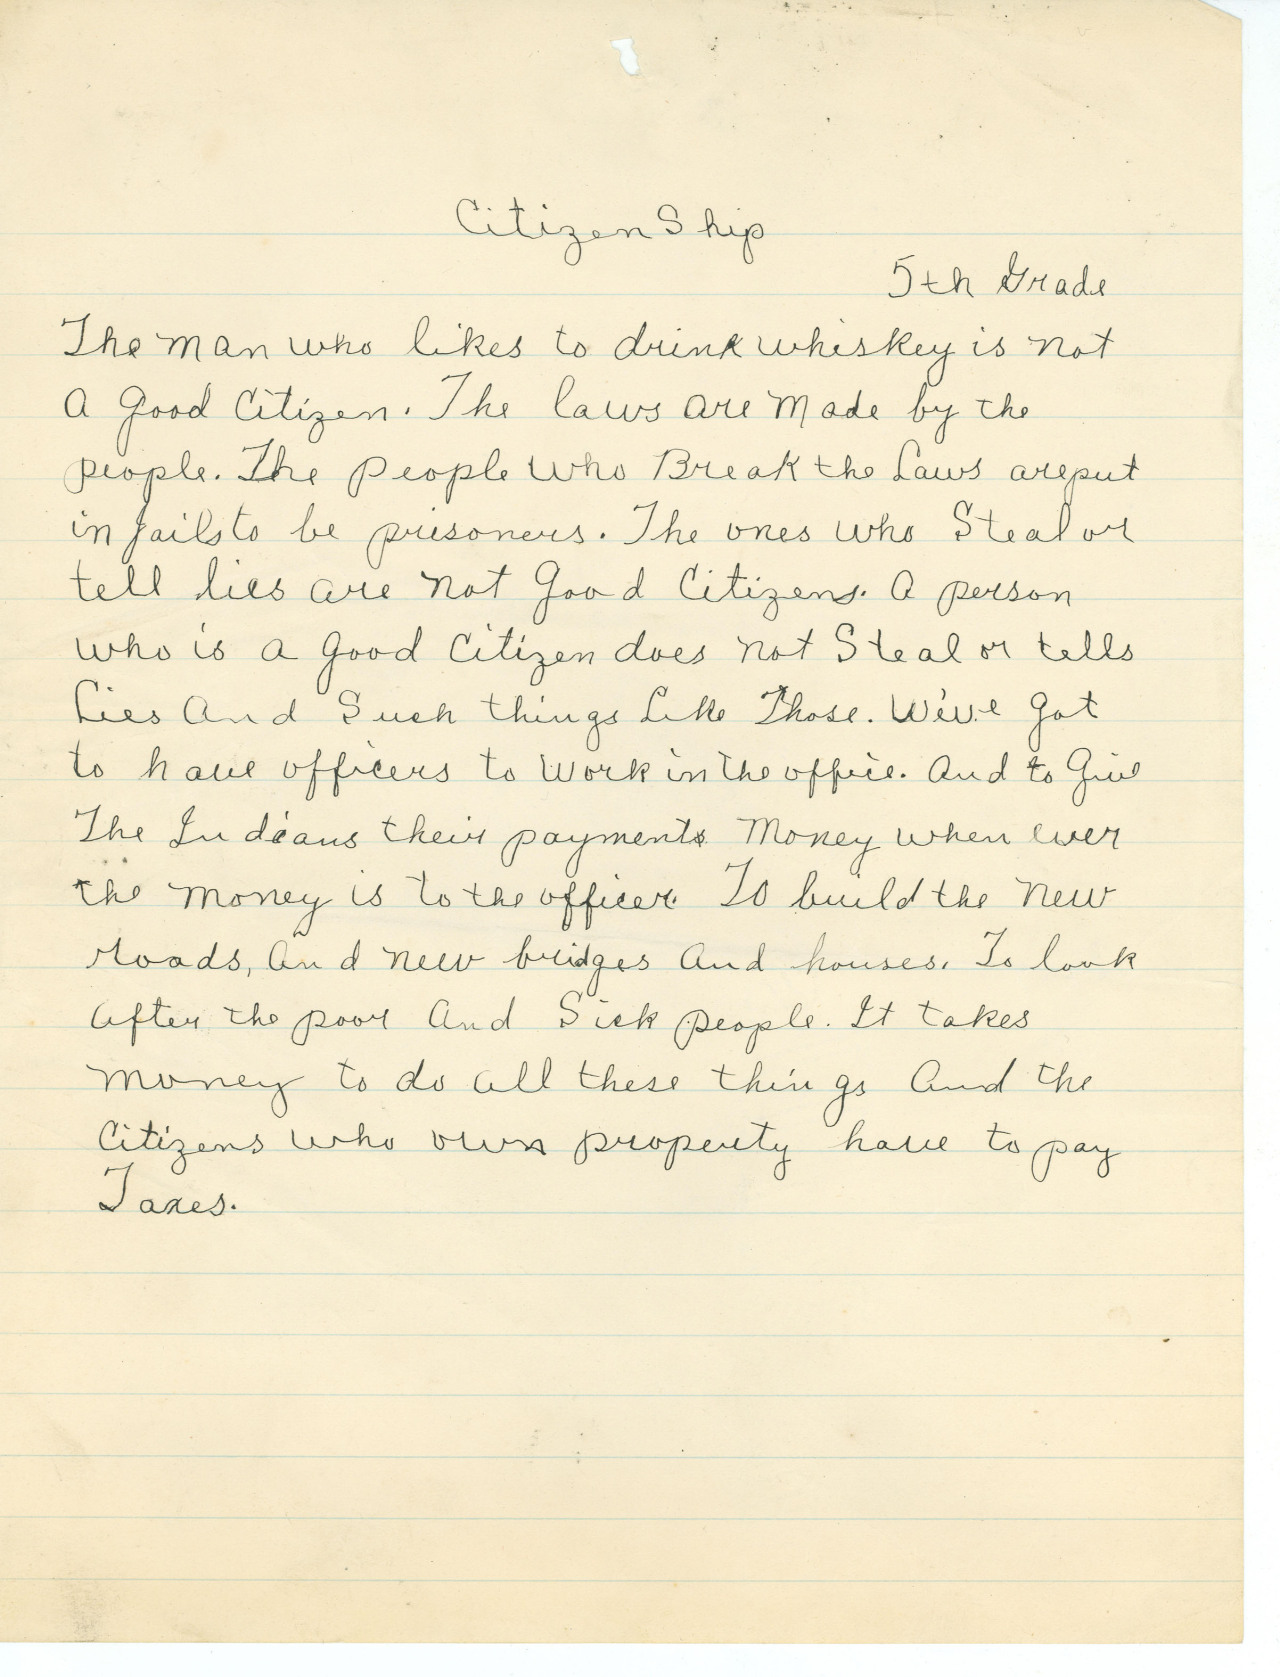 CitizenShip
5th Grade
The man who likes to drink whiskey is not
A good Citizen. The laws are Made by the
people. The People who Break the Laws are put
in jails to be prisoners. The ones who Steal or
tell lies are not Good Citizens. A person
who is a good Citizen does not Steal or tells
Lies And Such things Like Those. We've got
to have officers to Work in the office. And to Give
The Indians their payments Money when ever
the money is to the officer. To build the new
roads, And new bridges And houses. To look
after the poor And Sick people. It takes
money to do all these things And the
Citizens who own property have to pay
Taxes.